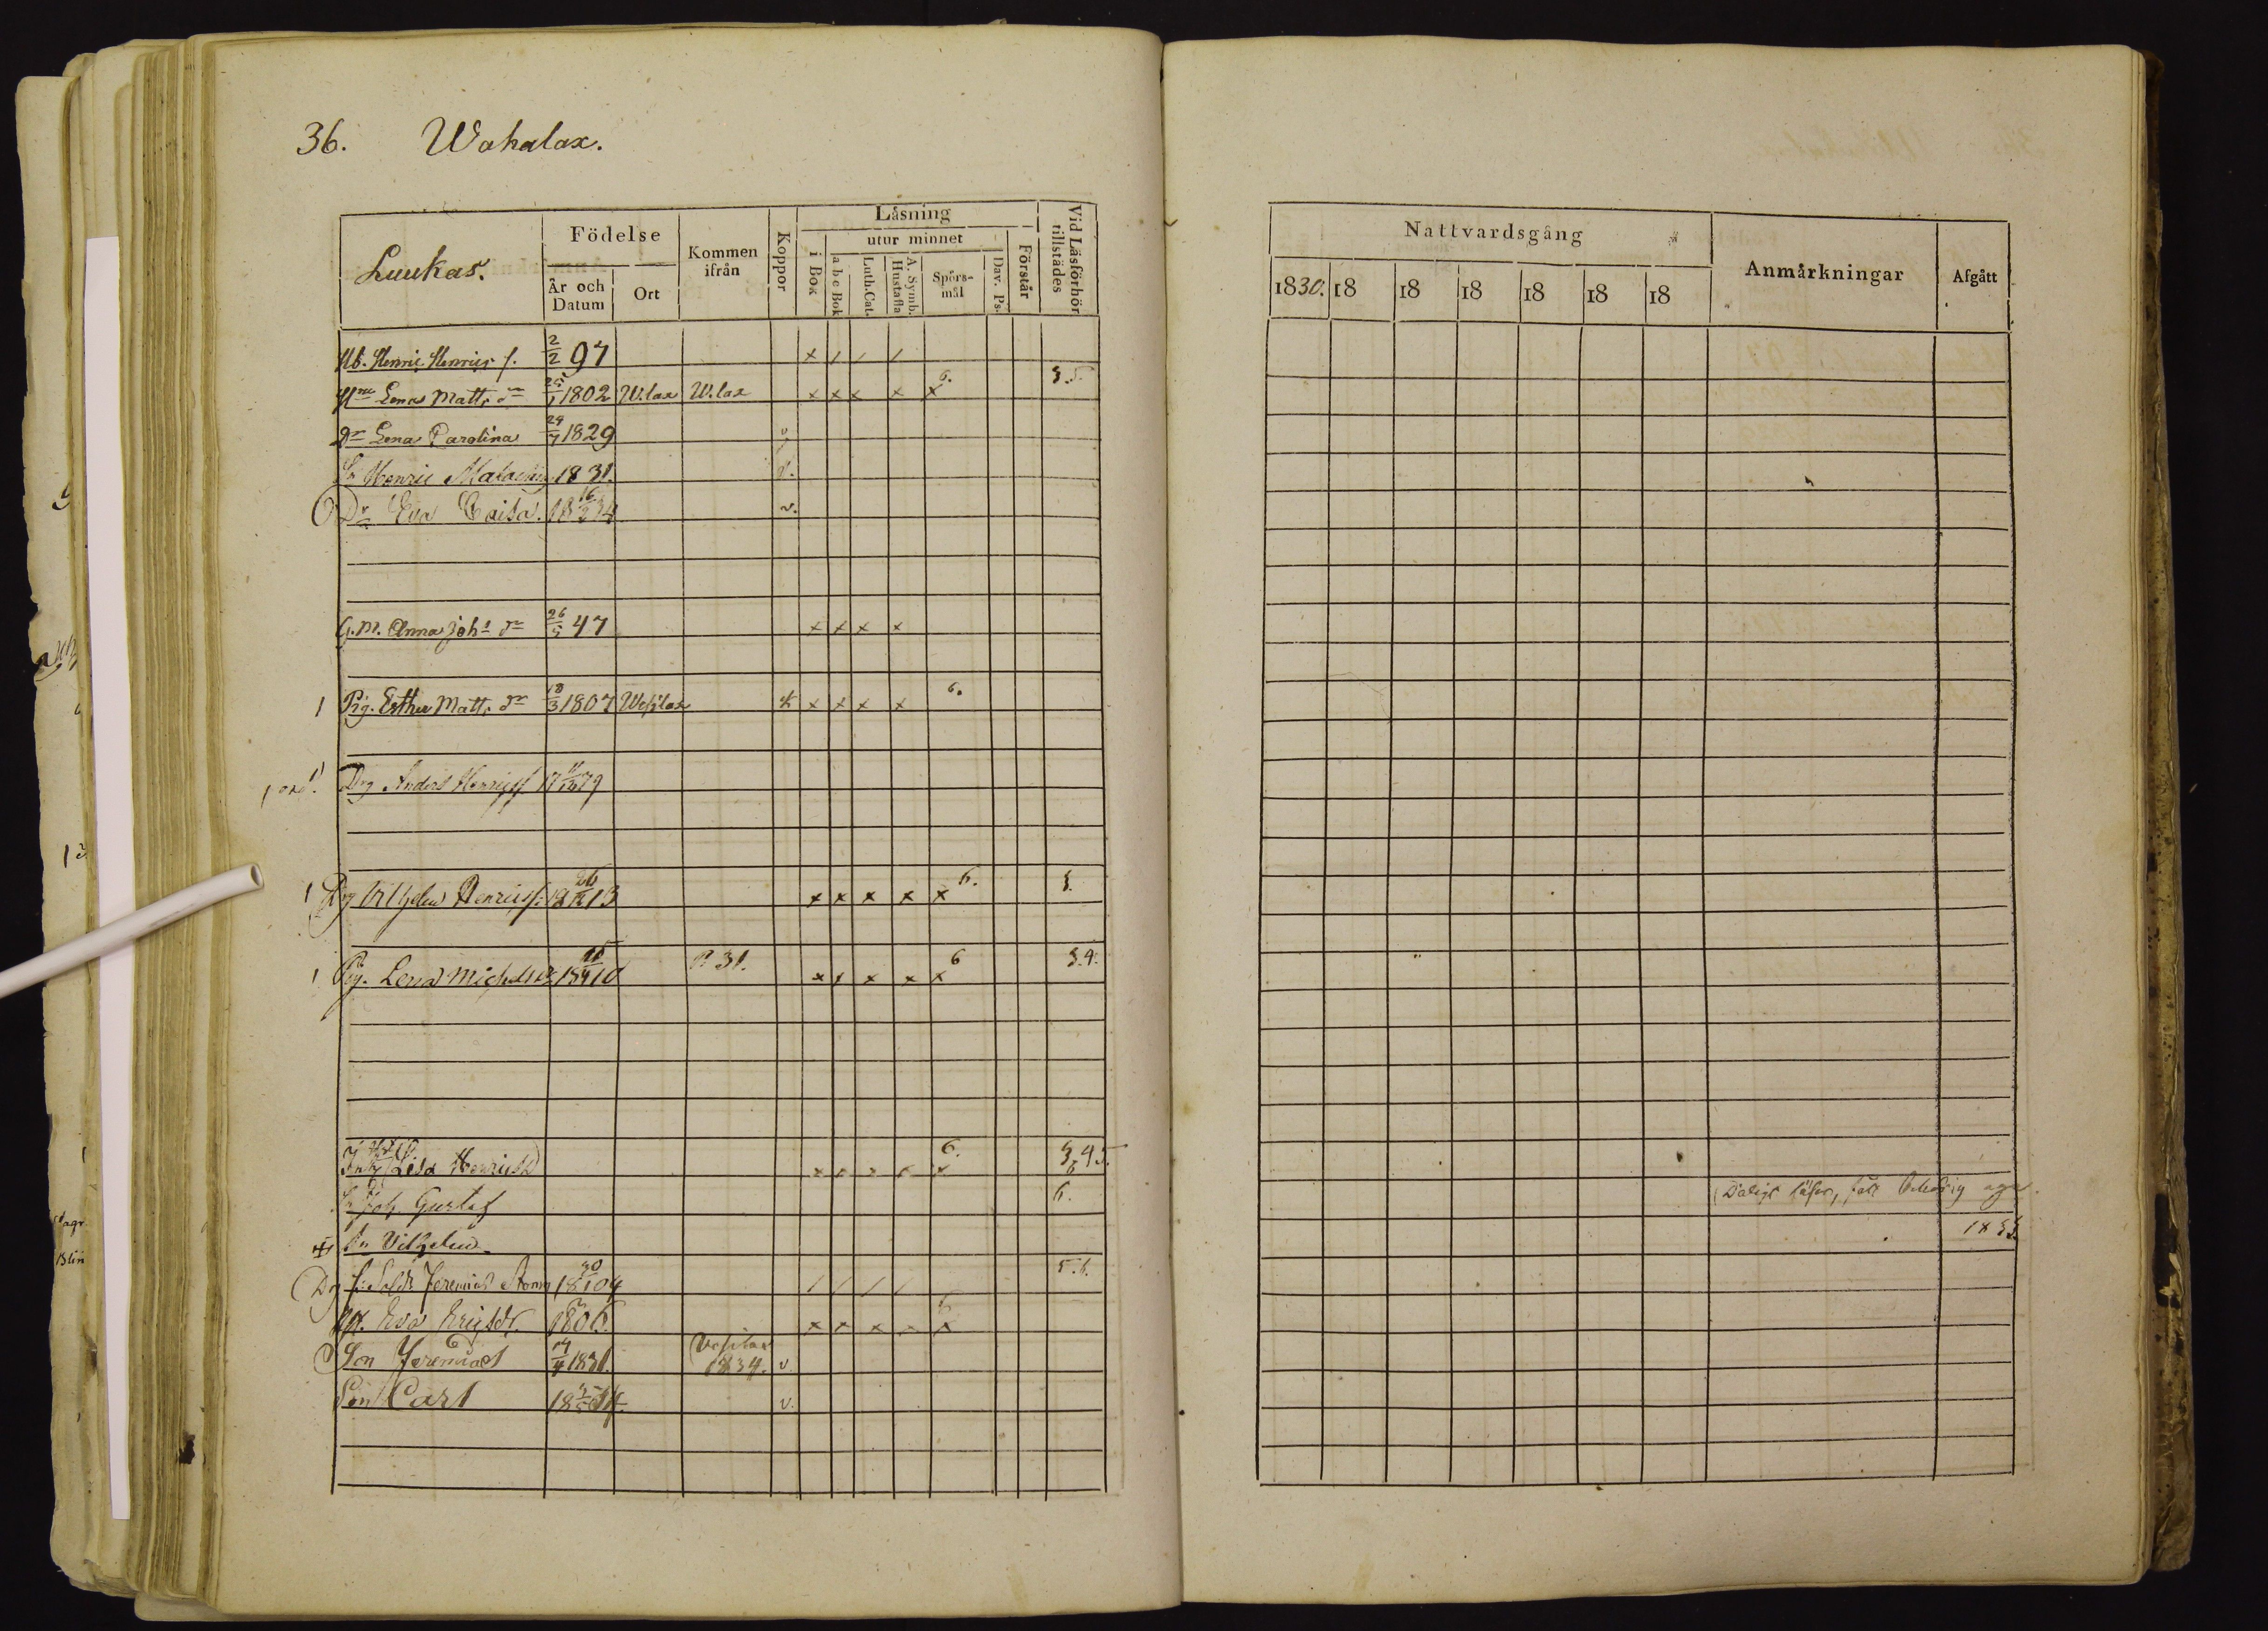 36. Wahalax.
Luukas.
Födelse
År och Datum
Ort
Kommen ifrån
Koppor
Läsning
i Bok
utur minnet
a b c Bok
Luth. Cat.
A. Symb. Hustafla
Spörsmål
Dav. Ps.
Förstår
Vid Läsförhör tillstädes
Hb. Henric Henrics s. 2/2 97 x / / /
Hne Lena Matts dr 1802 W.lax W.lax x x x x x 6. 3.5.
Dr Lena Carolina 29/7 1829 v
Sn Henric 1831. v.
Dr Eva Caisa. 18 16/2 34 v.
G.M. Anna Johs dr 26/5 47 x x x x
1 Pig. Esther Matts dr 18/3 1807 Wesilax x x x x 6.
Drg Anders Henricss. 17 79
1 Drg Vilhelm Henricss: 18 26/12 13 x x x x x 6. 3.
1 Pig. Lena Michelsdr 18 10 P. 31. x x x x x 6 3.4.
Lisa Henricsd 6. 3,4 5. 6
Sn Joh. Gustaf 6.
Sn Vilhelm
Drg f. Sold. Jeremias Strong 18 04 / / / / 5.6.
Hu. Eva Ericsdr. 1806. x x x x x 6
Son Jeremias 14/4 1831 Vesilax 1834. v
Son Carl 18 34. v.
Nattvardsgång
1830. 18 18 18 18 18 18
Anmärkningar
Afgått
Dåligt läser, får
1833.